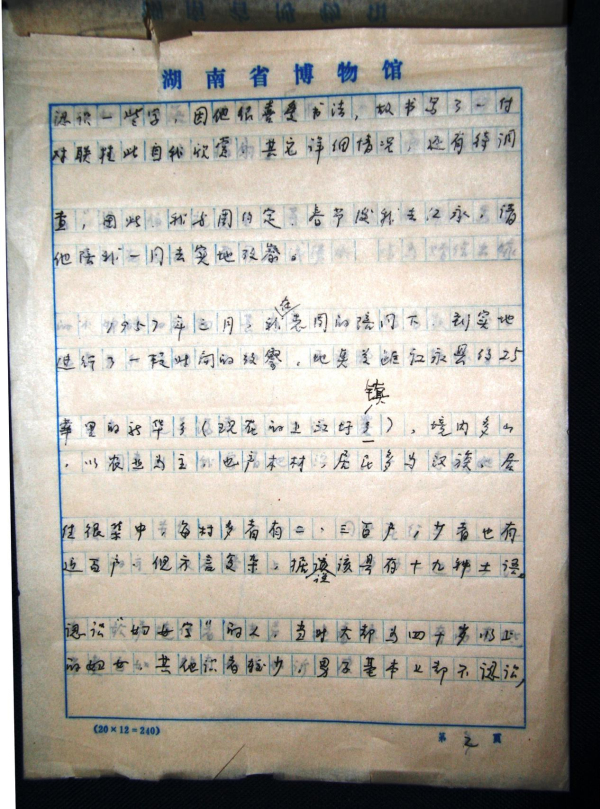 湖南省博物馆
认识一些字,因他很喜爱书法,故书写了一付
对联挂此自我欣赏,其它详细情况,还有待调
查,因此,我与周约定,春节后我去江永,请
他陪我一同去实地考察。
1957年正月,我在周的陪同下,到实地
进行了一段时间的考察,地点是距江永县约25
华里的新华乡(现在的上江圩镇),境内多山
,以农业为主,也产木材,居民多为汉族,居
住很集中,每村多者有二、三百户,少者也有
近百户,但方言复杂,据说该县有十九种土语。
认识“妇女字”的人,当时大都为四十岁以上
的妇女,其他识者极少,男子基本上都不认识,
(20×12=240)
第 页